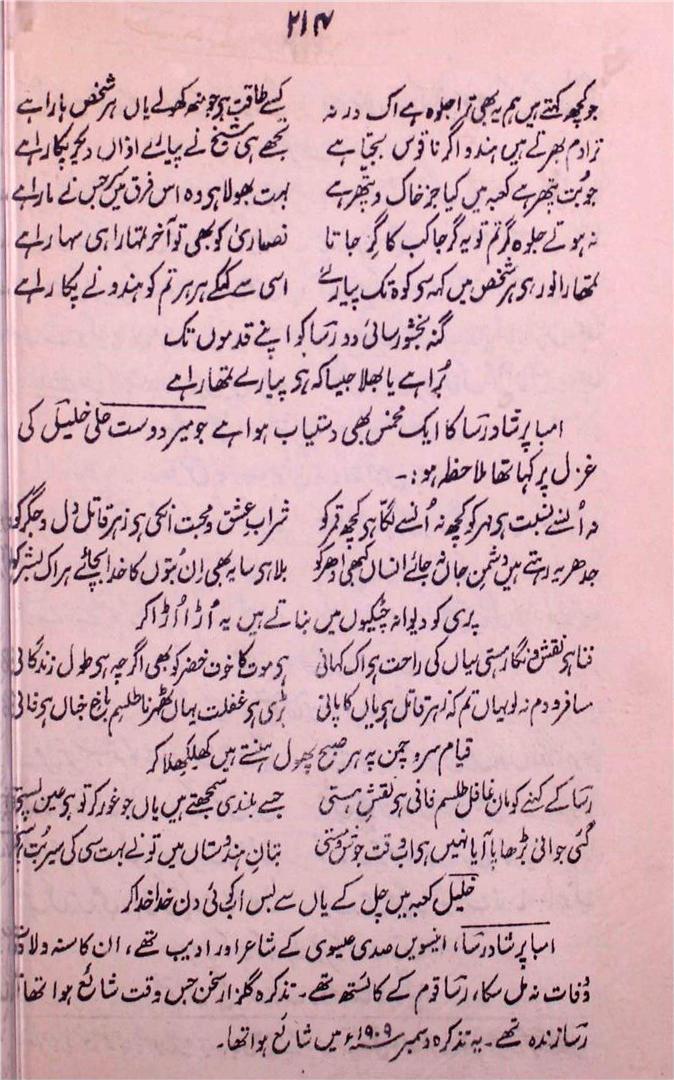 ۲۱۴
جو کچھ کہتے ہیں ہم یہ بھی ترا جلوہ ہے اک ورنہ کسے طاقت ہو جو منھ کھولے یاں ہر شخص ہارا ہے
ترا دم بھرتے ہیں ہندو اگر ناقوس بجتا ہے تجھے ہی شیخ نے پیارے اذاں دیکر پکارا ہے
جو بُت پتھر ہے کعبہ میں کیا جز خاک و پتھر ہے بہت بھولا ہو وہ اس فرق میں سر جس نے مارا ہے
نہ ہوتے جلوہ گر تم تو یہ گرجا کب کا گر جاتا نصاریٰ کو بھی تو آخر تمہارا ہی سہارا ہے
تمھارا نور ہو ہر شخص میں کہہ سو کوہ تک پیارے اسی سے کہکے ہر ہر تم کو ہندو نے پکارا ہے
گنہ بخشو رسائی دو رساؔ کو اپنے قدموں تک
بُرا ہے یا بھلا جیسا کہ ہو پیارے تمھارا ہے
امبا پرشاد رسا کا ایک مخمس بھی دستیاب ہوا ہے جو میر دوست علی خلیلؔ کی
غزل پر کہا تھا ملاحظہ ہو:۔
نہ اُنسے نسبت ہو مہر کو کچھ نہ اُنسے لگا ہو کچھ قمر کو شراب عشق و محبت انکی ہو زہر قاتل دل و جگر کو
جدھر یہ رہتے ہیں دشمن جاں نہ جائے انساں کبھی ادھر کو بلا ہو سایہ بھی اِن بُتوں کا خدا بچائے ہر اک بشر کو
پری کو دیوانہ چٹکیوں میں بناتے ہیں یہ اُڑا اُڑا کر
فنا ہو نقش و نگار ہستی یاں کی راحت ہو اک کہانی ہو موت کا خوف خضر کو بھی اگرچہ ہو طول زندگانی
مسافرو دم نہ لو یہاں تم کہ زہر قاتل ہو یاں کا پانی بڑی ہو غفلت یہاں ٹھہرنا طلسم باغ جہاں ہو فانی
قیام سرو چمن پہ ہر صبح پھول ہنستے ہیں کھلکھلا کر
رساؔ کے کہنے کو مان غافل طلسم فانی ہو نقش ہستی جسے بلندی سمجھتے ہیں یاں جو غور کر تو ہو عین پستی
گئی جوانی بڑھاپا آیا نہیں ہو اب وقت جوش و مستی بتانِ ہندوستاں میں تو نے بہت سی کی سیر بُت
خلیلؔ کعبہ میں چل کے یاں سے بس اب کوئی دن خدا خدا کر
امبا پرشاد رساؔ، انیسویں صدی عیسوی کے شاعر اور ادیب تھے، ان کا سنہ ولادت
وفات نہ مل سکا، رسا قوم کے کائستھ تھے۔ تذکرہ گلزار سخن جس وقت شائع ہوا تھا
رسا زندہ تھے۔ یہ تذکرہ دسمبر ۱۹۰۹ء میں شائع ہوا تھا۔